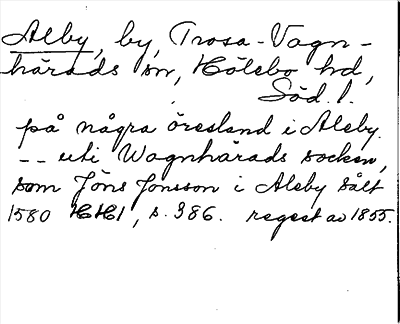 Alby, by, Trosa-Vagn-
härads sn, Hölebo hd,
Söd. l.
på några öresland i Aleby.
-- uti Wagnhärads socken,
som Jöns Jonsson i Aleby sålt
1580 HH1, s. 386. regest av 1855.